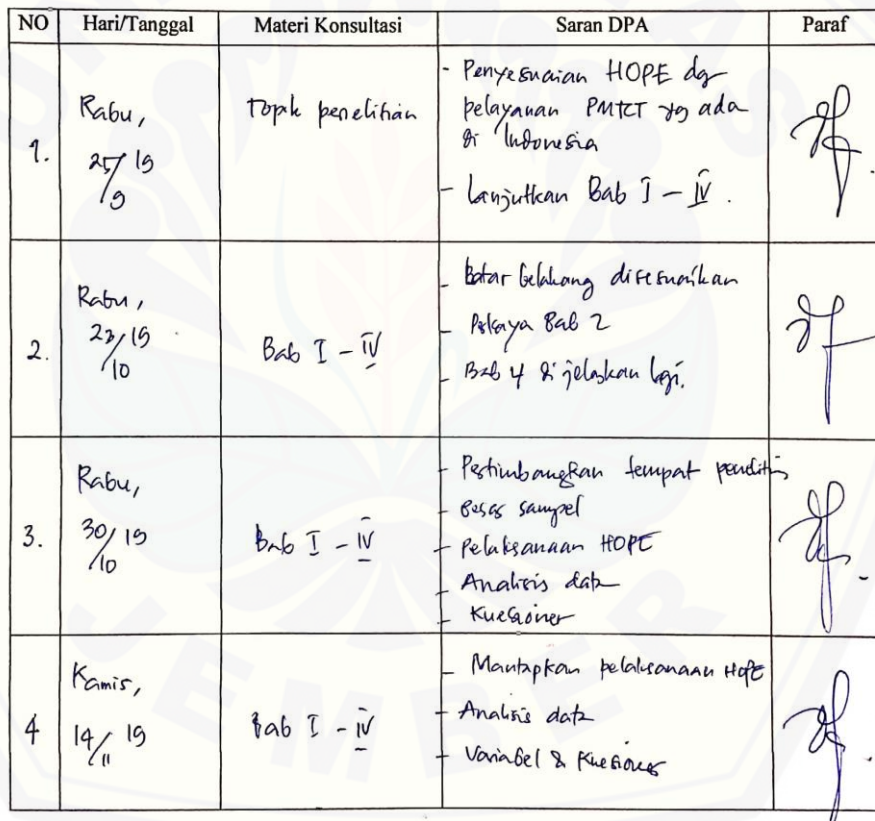 NO Hari/Tanggal Materi Konsultasi Saran DPA Paraf
1.
Rabu,
25/19
/9
Topik penelitian
- Penyesuaian HOPE dg
pelayanan PMTCT yg ada
di Indonesia
- Lanjutkan Bab I - IV.
2.
Rabu,
23/19
/10
Bab I - IV
- Latar belakang disesuaikan
- Bab 2
- Bab 4 dijelaskan lagi.
3.
Rabu,
30/19
/10
Bab I - IV
- Pertimbangkan tempat penelitian
- Besar sampel
- Pelaksanaan HOPE
- Analisis data
- Kuesioner
4
Kamis,
14/19
/11
Bab I - IV
- Mantapkan pelaksanaan HOPE
- Analisis data
- Variabel & Kuesioner
JEMBER